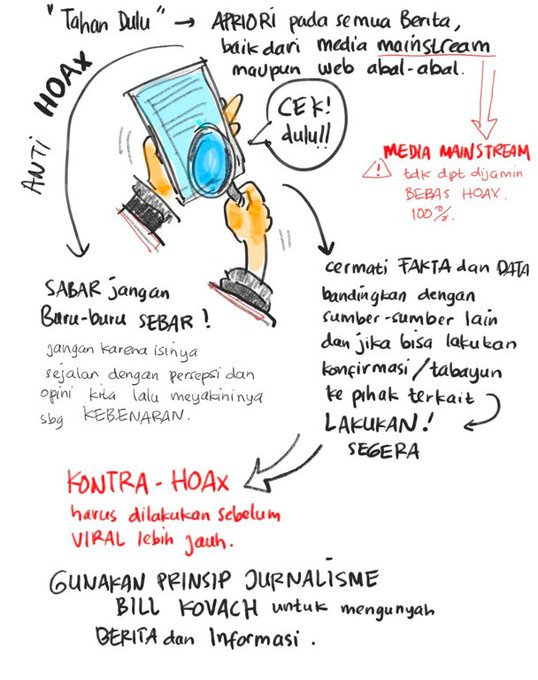 "Tahan Dulu" → APRIORI pada semua Berita,
baik dari media mainstream
maupun web abal-abal.
ANTI HOAX
CEK!
dulu!!
MEDIA MAINSTREAM
tdk dpt dijamin
BEBAS HOAX.
100%.
SABAR jangan
Buru-buru SEBAR!
jangan karena isinya
sejalan dengan persepsi dan
opini kita lalu meyakininya
sbg KEBENARAN.
cermati FAKTA dan DATA
bandingkan dengan
sumber-sumber lain
dan jika bisa lakukan
konfirmasi/tabayun
ke pihak terkait
LAKUKAN!
SEGERA
KONTRA-HOAX
harus dilakukan sebelum
VIRAL lebih jauh.
GUNAKAN PRINSIP JURNALISME
BILL KOVACH untuk mengunyah
BERITA dan Informasi.